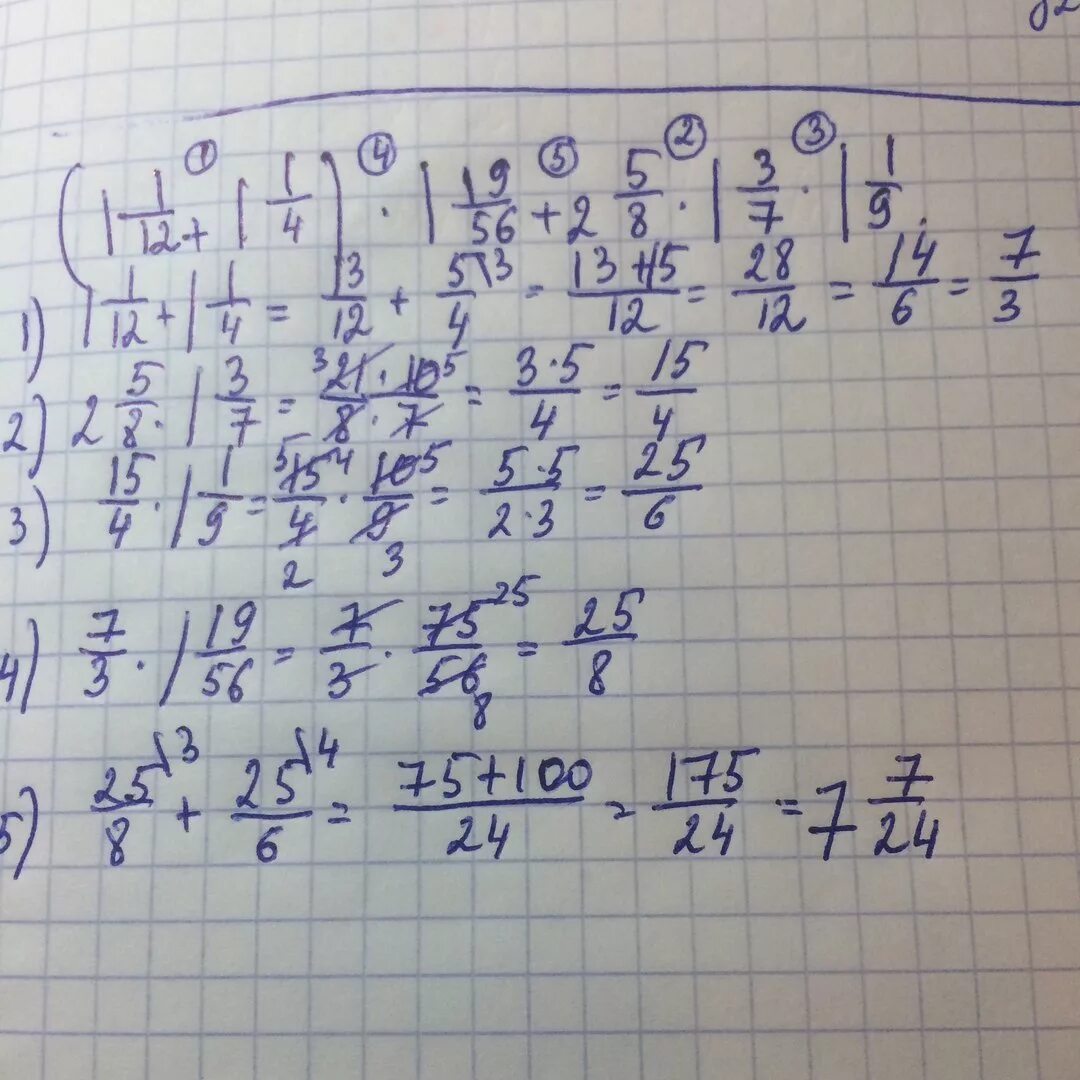 (1 1/12 + 1 1/4) · 1 19/56 + 2 5/8 · 1 3/7 · 1 1/9.
① ④ ⑤ ② ③
1) 1 1/12 + 1 1/4 = 13/12 + 5/4 \3 = (13+15)/12 = 28/12 = 14/6 = 7/3
2) 2 5/8 · 1 3/7 = (3 21 · 10 5)/(8 · 7) = (3·5)/4 = 15/4
3) 15/4 · 1 1/9 = 5 15/4 2 · 10 5/9 3 = (5·5)/(2·3) = 25/6
4) 7/3 · 1 19/56 = 7/3 · 75 25/56 8 = 25/8
5) 25/8 \3 + 25/6 \4 = (75+100)/24 = 175/24 = 7 7/24